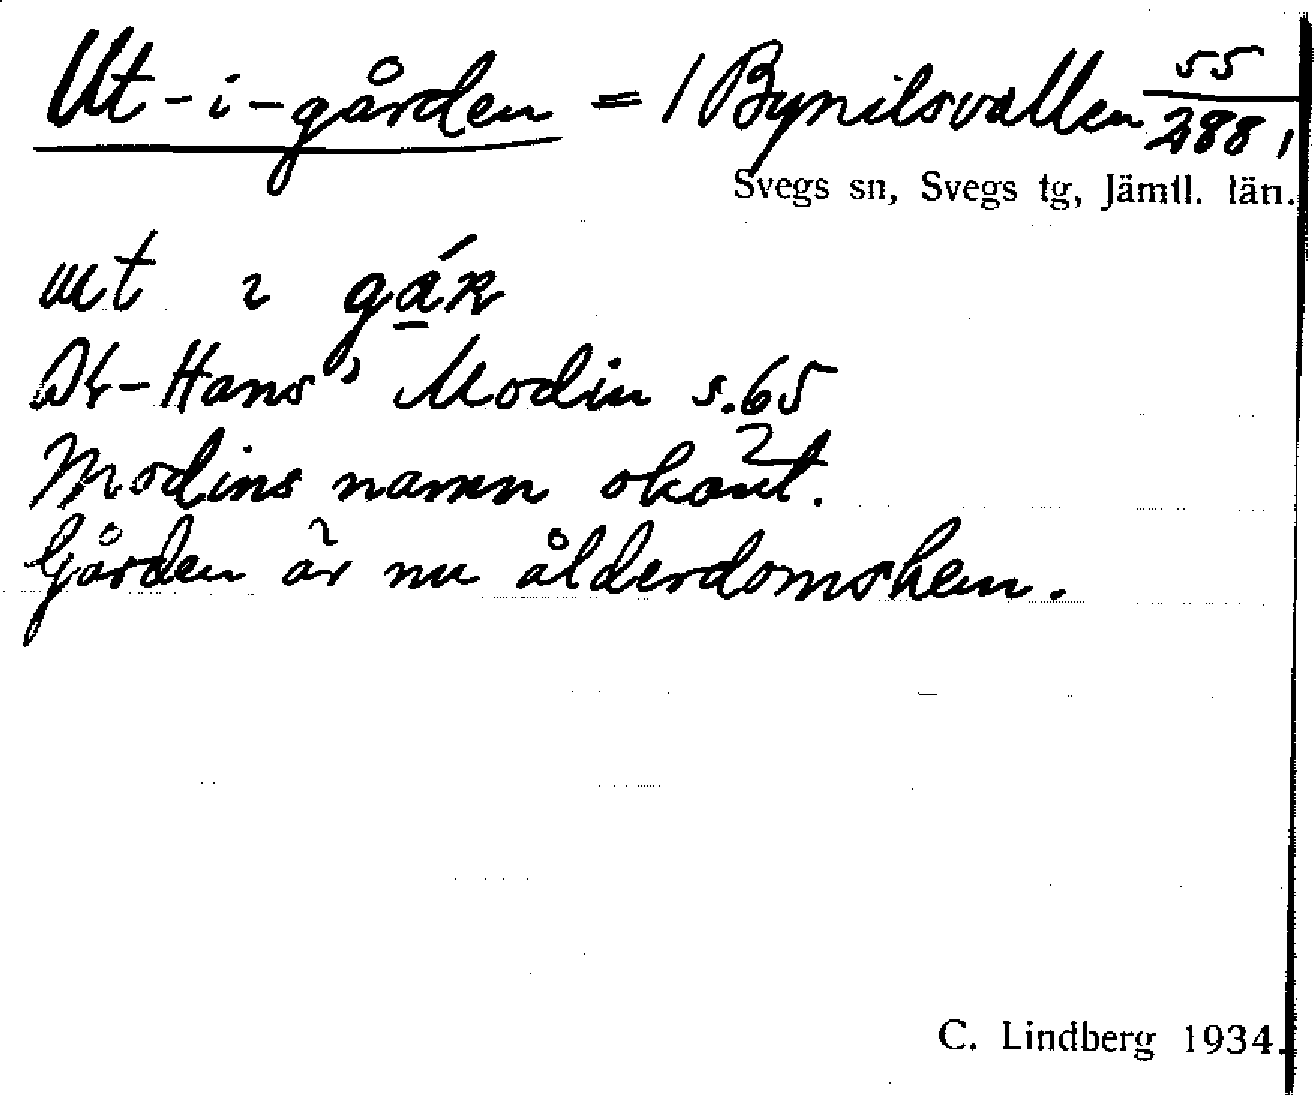 Ut-i-gården = / Bynilsvallen 55/288,
Svegs sn, Svegs tg, Jämtl. län.
ut i gár
-Hans' Modin s. 65
Modins namn okänt.
Gården är nu ålderdomshem.
C. Lindberg 1934.